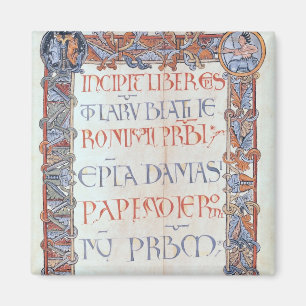 INCIPIT LIBER EPS
TLARV BEATI IE
RONIMI PRBI
EPLA DAMASI
PAPE MO IERO
NV PRBM